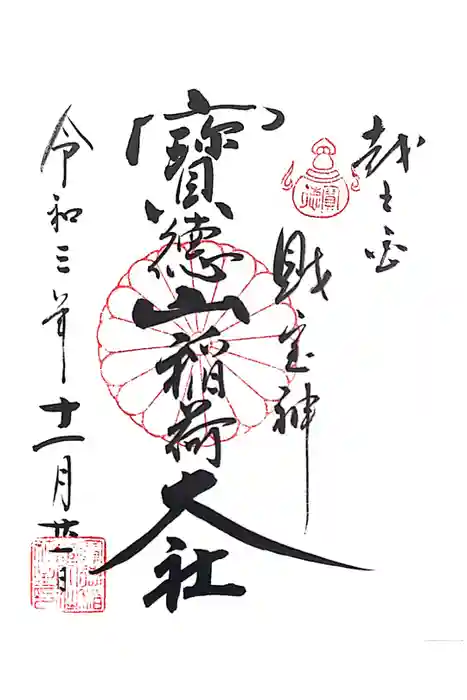 越之国
財宝神
寶徳
寶德山稲荷大社
令和三年十一月廿一日